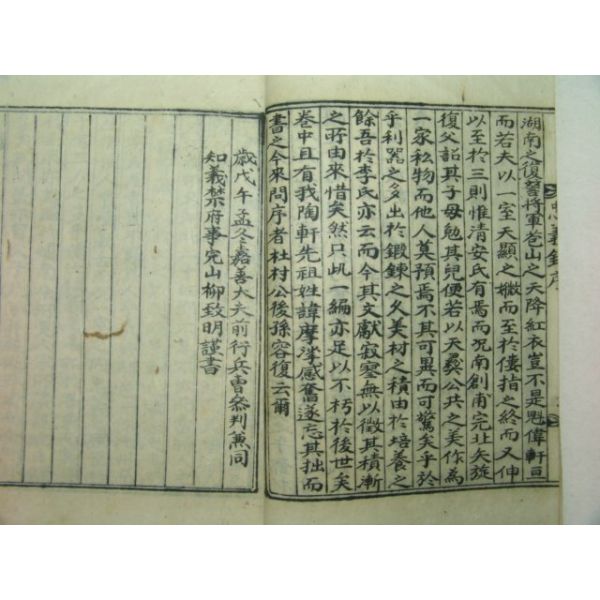 忠義錄序
湖南之復讐將軍苞山之天降紅衣豈不是魁偉軒
而若夫以一室天顯之微而至於僂指之終而又伸
以至於三則惟清安氏有焉而況南創甫完北矢旋
復父詔其子母勉其兒便若以天彛公共之美作為
一家私物而他人莫預焉不其可異而可驚矣乎於
乎利器之多出於鍛鍊之久美材之積由於培養之
餘吾於李氏亦云而今其文獻寂寥無以徵其積漸
之所由來惜矣然只此一編亦足以不朽於後世矣
卷中且有我陶軒先祖姓諱摩挲感奮遂忘其拙而
書之今來問序者杜村公後孫容復云爾
歲戊午孟冬嘉善大夫前行兵曹參判兼同
知義禁府事完山柳致明謹書